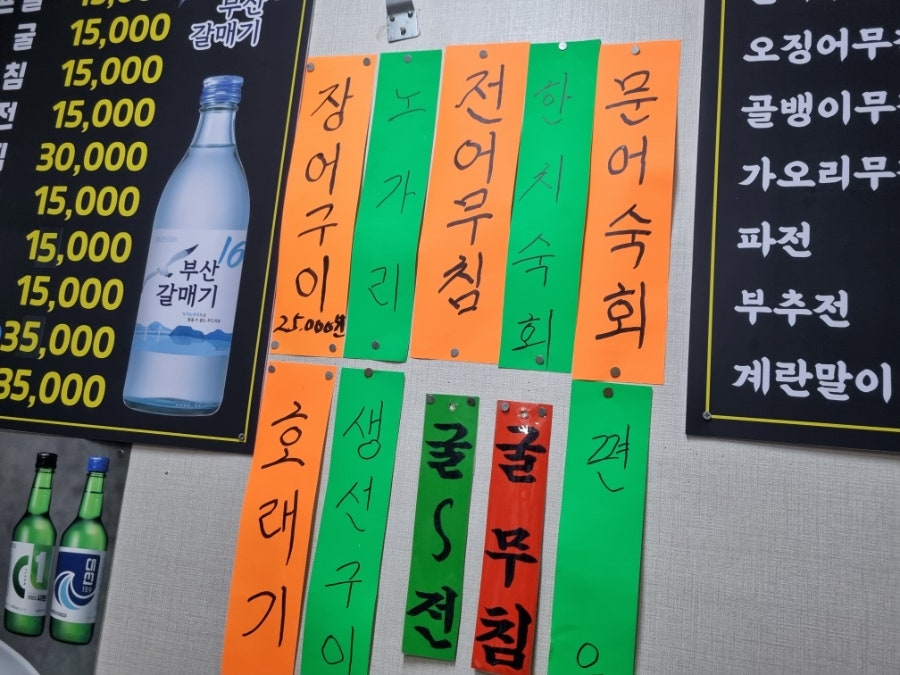 15,000
굴 15,000
침 15,000
전 15,000
30,000
15,000
15,000
15,000
35,000
35,000
부산
갈매기
16
부산
갈매기
장어구이
25.000원
노가리
전어무침
한치숙회
문어숙회
호래기
생선구이
굴~전
굴무침
편
오징어무
골뱅이무
가오리무
파전
부추전
계란말이